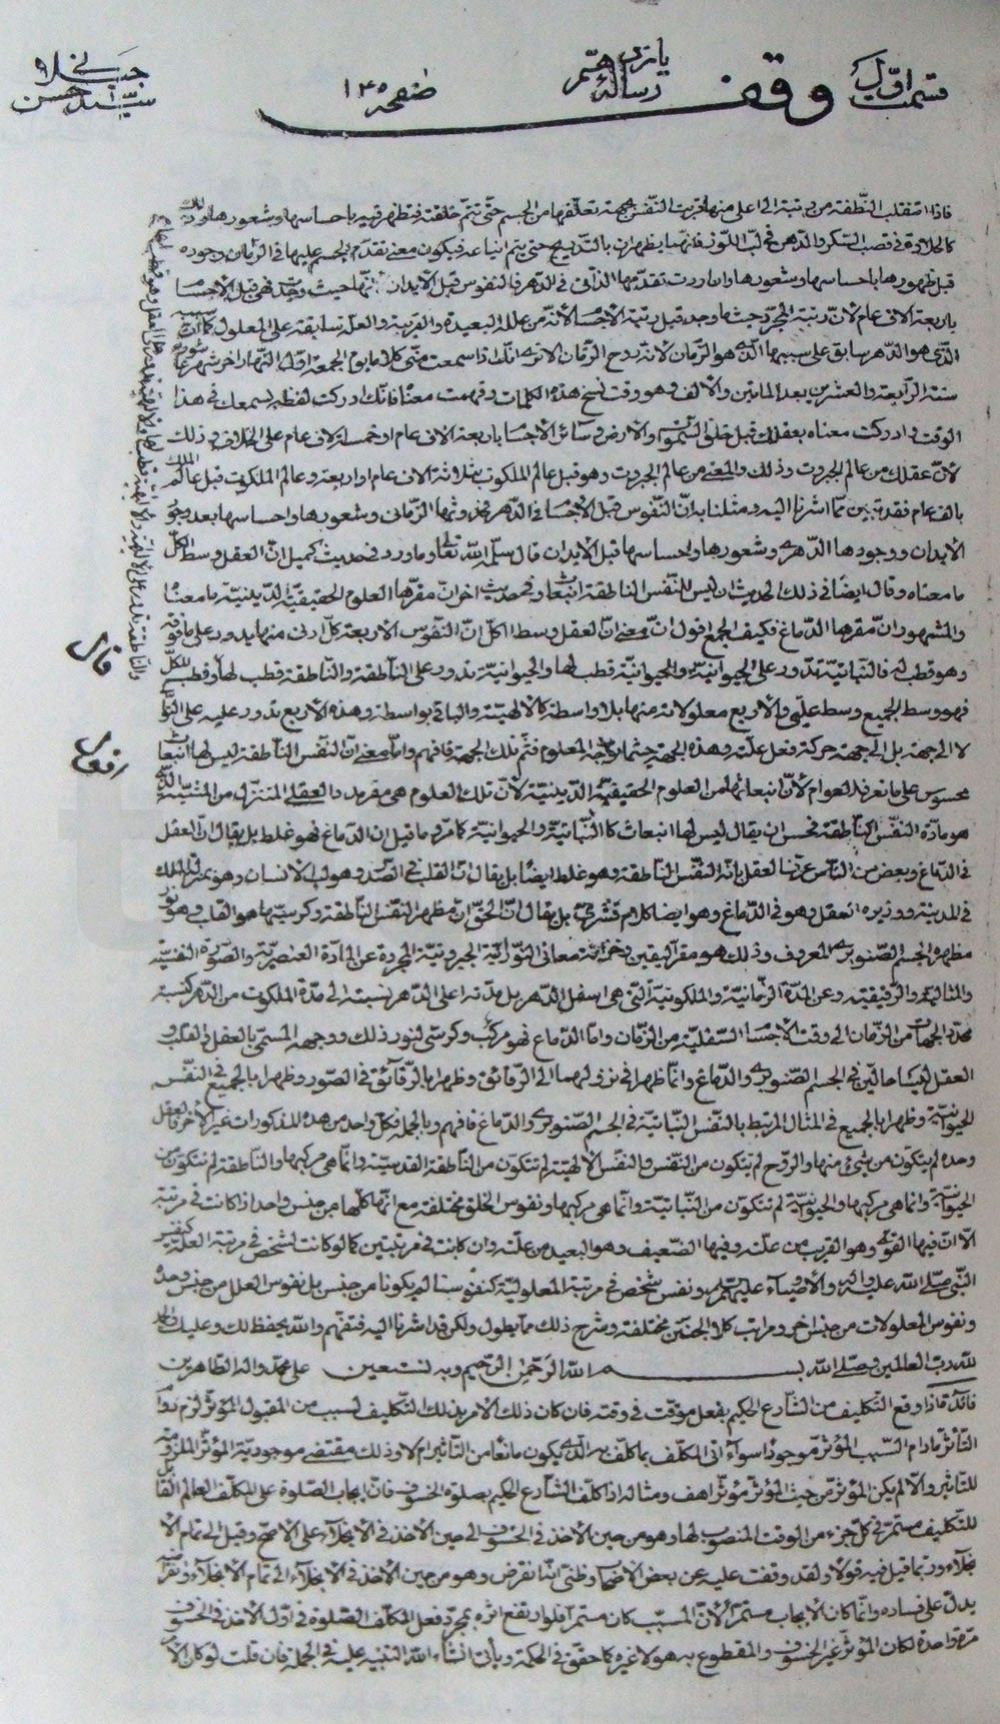 قسمت اوّل
وقف
یازدهم رساله
صفحه ۱۴۵
سیّد حسن
فاذا انتقلت النّطفة من رتبة الى اعلى منها قربت النّفس بجهة تعلّقها من الجسم حتّى تتمّ خلقته فتظهر فيه باحساسها وشعورها
كالحلاوة فى قصب السّكر والدّهن فى لبّ اللّوز فانّهما يظهران بالتّدريج حتى يتمّ فيكون معنى تقدّم الجسم عليها فى الزّمان وجوده
قبل ظهورها باحساسها وشعورها وان اردت تقدّمها الذّاتى فى الدّهر فالنفوس قبل الابدان حيث وجدت فهى قبل الاجسا
باربعة الاف عام لانّ رتبة المجرّد حيثما وجد قبل رتبة الاجسا لانّه من علله البعيدة والقريبة والعلّة سابقة على المعلول
الّذى هو الدّهر سابق على الّذى هو الزّمان لانّه روح الزّمان الاترى انّك اذا سمعت منّى كلاما يوم الجمعة اوّل النّهار اخر شهر
سنة الرّابعة والعشرين بعد المأتين والالف وهو وقت نسخ هذه الكلمات وفهمت معناه فانّك ادركت لفظه بسمعك فى هذا
الوقت وادركت معناه بعقلك قبل خلق السّموات والارض وسائر الاجسا باربعة الاف عام او خمسة الاف عام على الخلاف وذلك
لانّ عقلك من عالم الجبروت وذلك والمعنى من عالم الجبروت وهو قبل عالم الملكوت بثلاثة الاف عام او اربعة وعالم الملكوت قبل عالم الملك
بالف عام فقد تبيّن ممّا اشرنا اليه ومثلنا به انّ النّفوس قبل الاجسا فى الدّهر الزّمانى وشعورها واحساسها بعد
الابدان ووجودها الدّهرى وشعورها واحساسها قبل الابدان قال سلّمه اللّه تعالى وما ورد فى حديث كميل انّ العقل وسط الكلّ
ما معناه وقال ايضا فى ذلك الحديث ان ليس للنّفس الناطقة انبعاث وفى حديث اخر انّ مقرّها العلوم الحقيقيّة الدّينيّة ما معناه
والمشهور انّ مقرها الدّماغ فكيف الجمع اقول انّ معنى انّ العقل وسط الكلّ انّ النّفوس الاربعة كلّ ادنى منها يدور على ما فوقه
وهو قطب له فالنّباتيّة تدور على الحيوانيّة والحيوانيّة قطب لها والحيوانيّة تدور على النّاطقة والنّاطقة قطب لها وقطب الكلّ
فهو وسط الجميع وسط علّيّ والاربع معلولاته منها بلا واسطة كالالهيّة والباقى بواسطة وهذه الاربع تدور عليه على التّوا
لا الى جهة بل الى جهة حركة فعل علّته وهذه الجهة حيثما توجّه المعلوم فثمّ تلك الجهة فافهم وامّا معنى انّ النّفس النّاطقة ليس لها انبعاث
محسوس على ما تعرفه العوام لانّ انبعاثها من العلوم الحقيقيّة الدّينيّة لانّ تلك العلوم هى مقرّ مدد العقلى المتنزّل من المشيّة الّذى
هو مادّة النّفس النّاطقة فحسن ان يقال ليس لها انبعاث كالنّباتيّة والحيوانيّة كما مرّ وما قيل ان الدّماغ فهو غلط بل يقال انّ العقل
فى الدّماغ وبعض من النّاس عرّف العقل بانّه النّفس النّاطقة وهو غلط ايضا بل يقال انّ القلب فى الصّدر وهو لبّ الانسان وهو بمنزلة الملك
فى المدينة ووزيره العقل وهو فى الدّماغ وهو ايضا كلام قشرىّ بل يقال انّ الحقّ انّ مظهر النّفس النّاطقة وكرسيّها هو القلب وهو
مظهره الجسم الصّنوبرى المعروف وذلك هو مقرّ اليقين وخزانة معانى النّورانيّة الجبروتيّة المجرّدة عن المادّة العنصريّة والصّورة النفسيّة
والمثاليّة والرّقيقيّة وعن المدّة الزّمانيّة والملكوتيّة الّتى هى اسفل الدّهر بل مدّته اعلى الدّهر نسبته الى مدّة الملكوت من الدّهر كنسبة
من الزّمان الى وقت الاجسا السّفليّة من الزّمان وامّا الدّماغ فهو مركب وكرسّى لنور ذلك ووجهه المسمّى بالعقل والقلب و
العقل ليسا حالّين فى الجسم الصّنوبرى والدّماغ وانّما ظهرا فى نزولهما الى الرّقائق وظهرا بالرّقائق فى الصّور وظهرا بالجميع فى النّفس
الحيوانيّة وظهرا بالجميع فى المثال المرتبط بالنّفس النّباتيّة فى الجسم الصّنوبرى والدّماغ فافهم وبالجملة فكلّ واحد من هذه المذكورات غير الاخر فالعقل
وحده لم يتكوّن من شئ منها والرّوح لم يتكون من النّفس والنفس الالهيّة لم تتكوّن من النّاطقة القدسيّة وانّما هى مركبها والنّاطقة لم تتكوّن من
الحيوانيّة وانّما هى مركبها والحيوانيّة لم تتكوّن من النّباتيّة وانّما هى مركبها ونفوس الخلق مختلفة مع انّها كلّها من جنس واحد اذا كانت فى مرتبة
الّا انّ فيها القوىّ وهو القريب من علّته وفيها الضّعيف وهو البعيد من علّته وان كانت فى مرتبتين كما لو كانت لشخص فى مرتبة العلّة كنفس
النّبى صلّى اللّه عليه واله والاوصياء عليهم السّلم ونفس شخص فى مرتبة المعلوليّة كنفوسنا لم يكونا من جنس بل نفوس العلل من جنس وحده
ونفوس المعلولات من جنس اخر ومراتب كلا الجنسين مختلفة وشرح ذلك ممّا يطول ولكن قد اشرنا اليه فتفهّم واللّه يحفظ لك وعليك والحمد
للّه ربّ العالمين وصلّى اللّه بسم اللّه الرّحمن الرّحيم وبه نستعين على محمّد واله الطّاهرين
فائدة اذا وقع التّكليف من الشّارع الحكيم بفعل موقّت فى وقته فان كان ذلك الامر بذلك التّكليف لسبب من المقبول المؤثّر لزم دوا
التّأثير ما دام السّبب المؤثّر موجودا سواء اتى المكلّف بما كلّف به الّذى يكون مانعا من التّأثير ام لا وذلك مقتضى موجوديّة المؤثّر الملزومة
للتأثير والّا لم يكن المؤثّر من حيث المؤثّر مؤثّرا هف ومثاله اذا كلّف الشّارع الحكيم بصلوة الخسوف فانّ ايجاب الصّلوة على المكلّف العالم القا
للتكليف مستمرّ فى كلّ جزء من الوقت المنصوب لها وهو من حين الاخذ فى الخسوف الى حين الاخذ فى الانجلاء على الاصحّ وقيل الى تمام الا
نجلاء وربّما قيل فيه قولا ولقد وقفت عليه عن بعض الاصحا وظنّى انّها تقرض وهو من حين الاخذ فى الانجلاء الى تمام الانجلاء
يدلّ على فساده وانّما كان الايجاب مستمرّا لانّ المسبّب كان مستمرّا فلو ارتفع اثره بمجرّد فعل المكلّف الصّلوة فى اوّل الاخذ فى الخسوف
مرّة واحدة لكان المؤثّر غير الخسوف والمقطوع به هو لا غيره كما حقّق فى الحكمة ويأتى انشاء اللّه التنبيه عليه فى الجملة فان قلت لو كان الا
قال
اقول